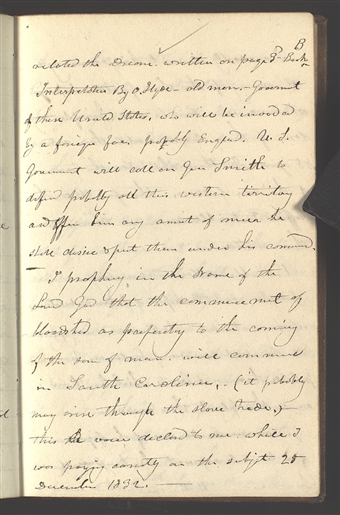 related the Dream written on page 3d Book B
Interpretation By O. Hyde - old man. - Government
of these United States, who will be invaded
by a foreign foe, probably England. U. S.
Government will call on Gen Smith to
defend probably all this western territory
and offer him any amount of men he
shall desire & put them under his command.
I prophecy in the Name of the
Lord God that the commencement of
bloodshed as preparatory to the coming
of the son of man. will commence
in South Carolina,. (it probably
may arise through the slave trade.)
this the voice declared to me. while I
was praying earnestly on the subject 25
December 1832. —